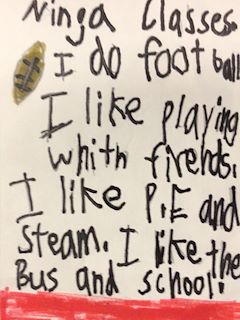 Ninga Classes.
I do foot ball
I like playing
whith firends.
I like P.E and
Steam. I like the
Bus and school!